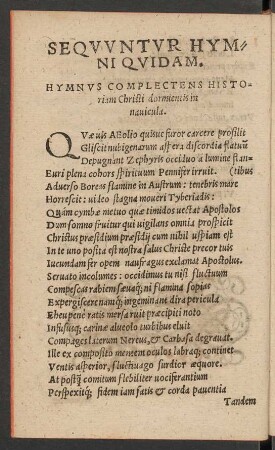 SEQVVNTVR HYM-
NI QVIDAM.
HYMNVS COMPLECTENS HISTO-
riam Christi dormientis in
nauicula.
QVæ uis AEolio quisue furor carcere prosilit
Gliscit nubigenarum aspera discordia flatuũ
Depugnant Zephyris occiduo a lumine flan-
Euri plena cohors spirituum Pennifer irruit. (tibus
Aduerso Boreas flamine in Austrum: tenebris mare
Horrescit: uideo stagna moueri Tyberiadis:
Quàm cymbæ metuo quæ timidos uectat Apostolos
Dum somno fruitur qui uigilans omnia prospicit
Christus præsidium præsidij cum nihil uspiam est
In te uno posita est nostra salus Christe precor tuis
Iucundam fer opem naufragus exclamat Apostolus.
Seruato incolumes: occidimus tu nisi fluctuum
Compescas rabiem sæuaq; ni flamina sopias
Expergiscere namq; ingeminant dira pericula
Eheu penè ratis mersa ruit præcipiti noto
Infususq; carinæ alueolo turbibus eluit
Compages lacerum Nereus, & Carbasa degrauat.
Ille ex composito mentem oculos labraq; continet
Ventis asperior, fluctiuago surdior æquore.
At postq̃ comitum flebiliter uociferantium
Perspexitq; fidem iam satis & corda pauentia
Tandem